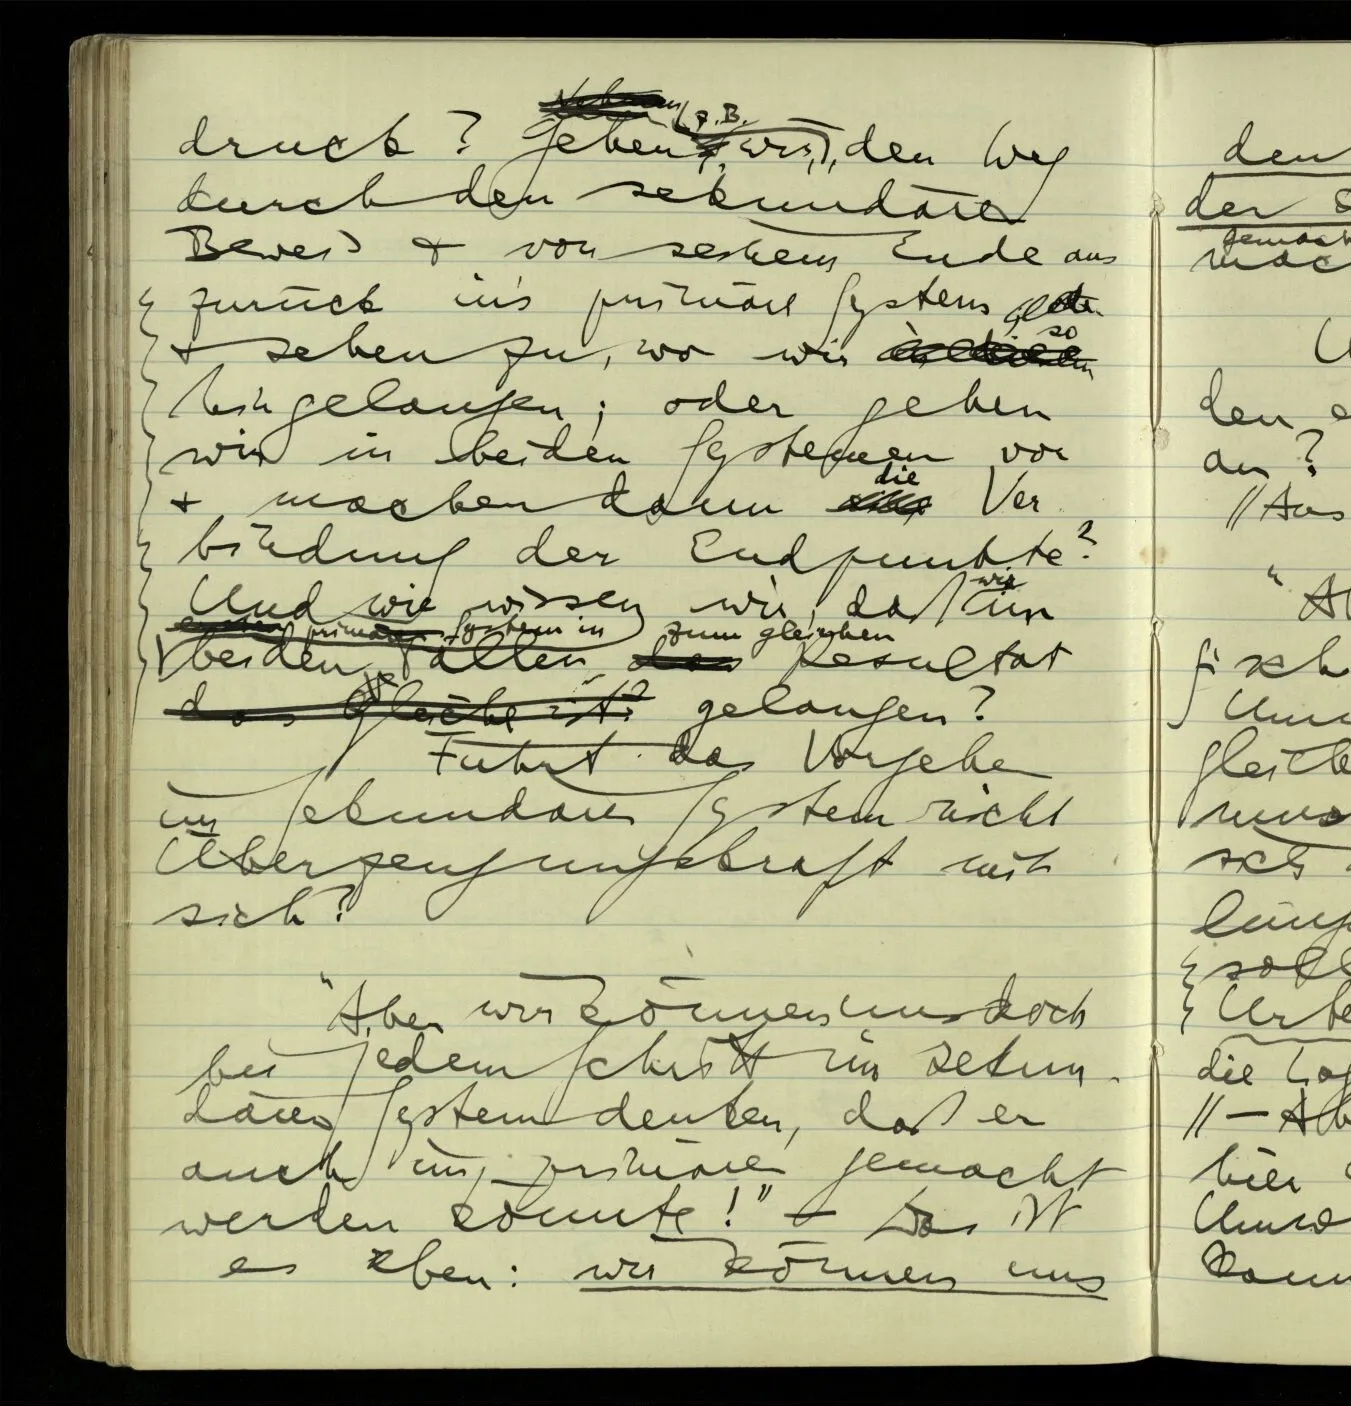 druck? Gehen z.B. wir, den Weg
durch den sekundären
Beweis & von seinem Ende aus
zurück in's primäre System
& sehen zu, wo wir so
hingelangen; oder gehen
wir in beiden Systemen vor
& machen dann die Ver
bindung der Endpunkte?
Und wie wissen wir, daß wir im
primären System in
beiden Fällen zum gleichen Resultat
das Gleiche ist? gelangen?
Führt das Vorgehen
im sekundären System nicht
Überzeugungskraft mit
sich?
"Aber wir können uns doch
bei jedem Schritt im sekun-
dären System denken, daß er
auch im primären gemacht
werden könnte!" – Das ist
es eben: wir können uns
den
der
gemacht
den
an?
// Aus
die
// —
hier